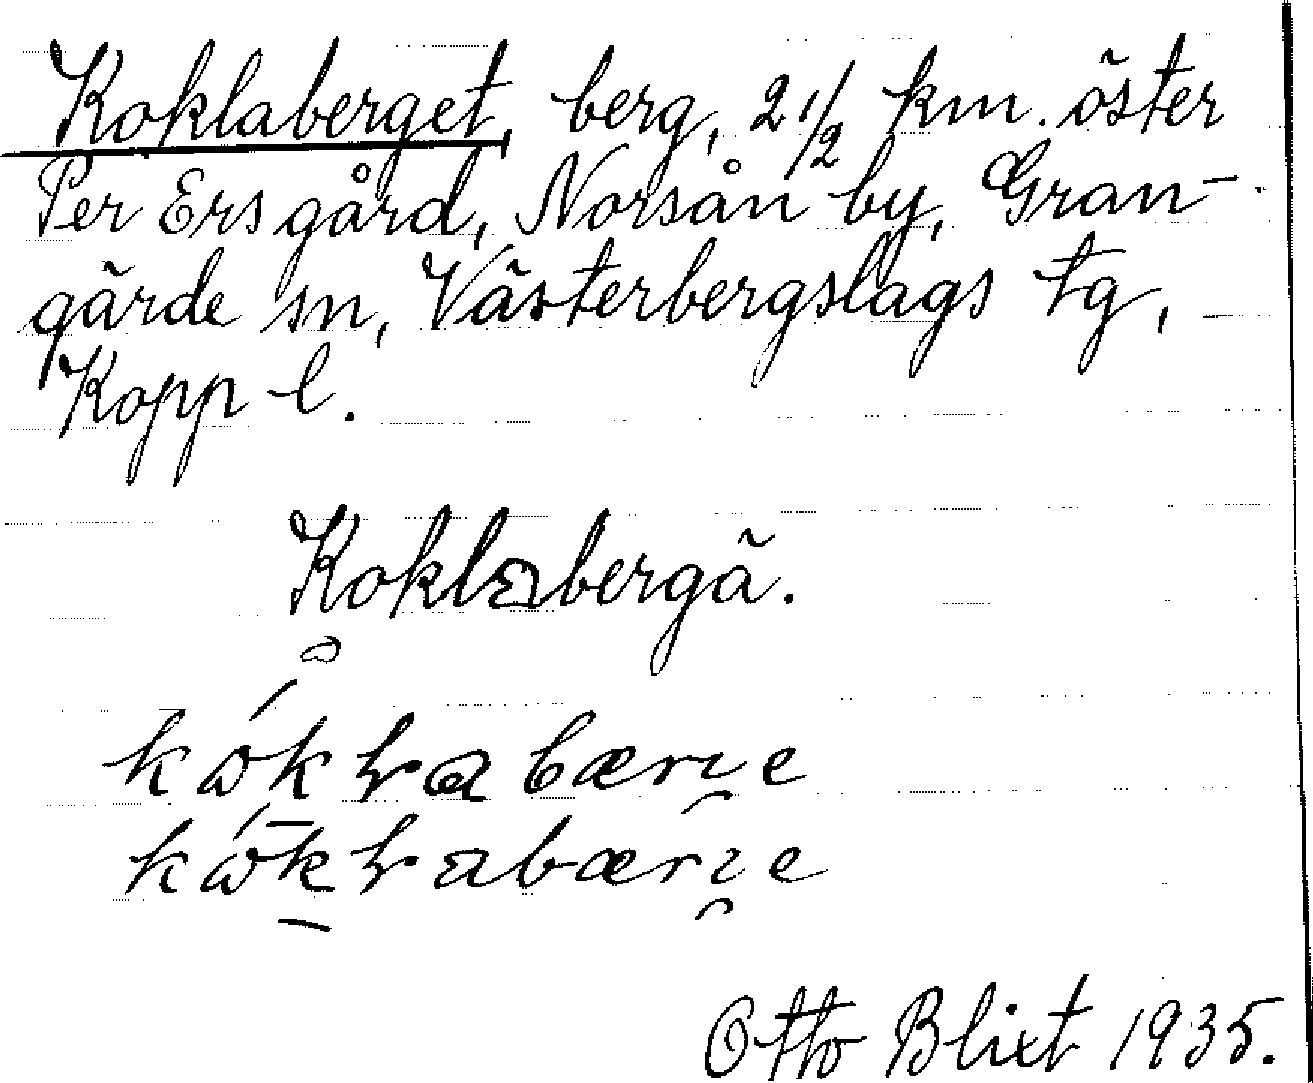 Koklaberget, berg, 2 1/2 km. öster
Per Ersgård, Norsån by, Gran-
gärde sn, Västerbergslags tg,
Kopp l.
Koklabergä.
Otto Blixt 1935.